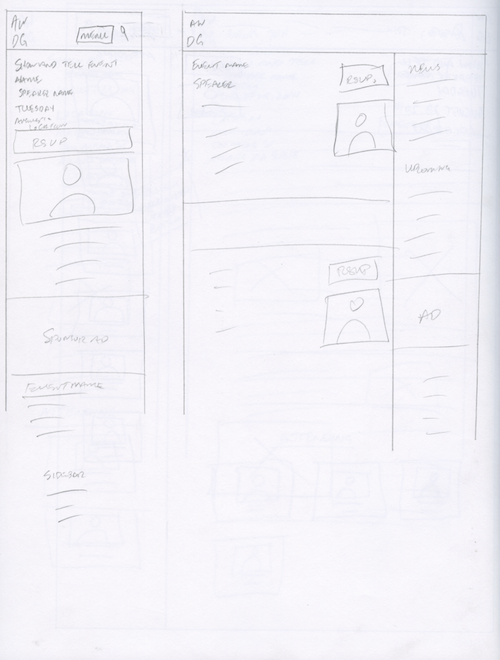 AW
DG
MENU
SHOW AND TELL EVENT
NAME
SPEAKER NAME
TUESDAY
LOCATION
RSVP
SPONSOR AD
EVENT NAME
SIDEBAR
AW
DG
EVENT NAME
SPEAKER
RSVP
NEWS
UPCOMING
RSVP
AD